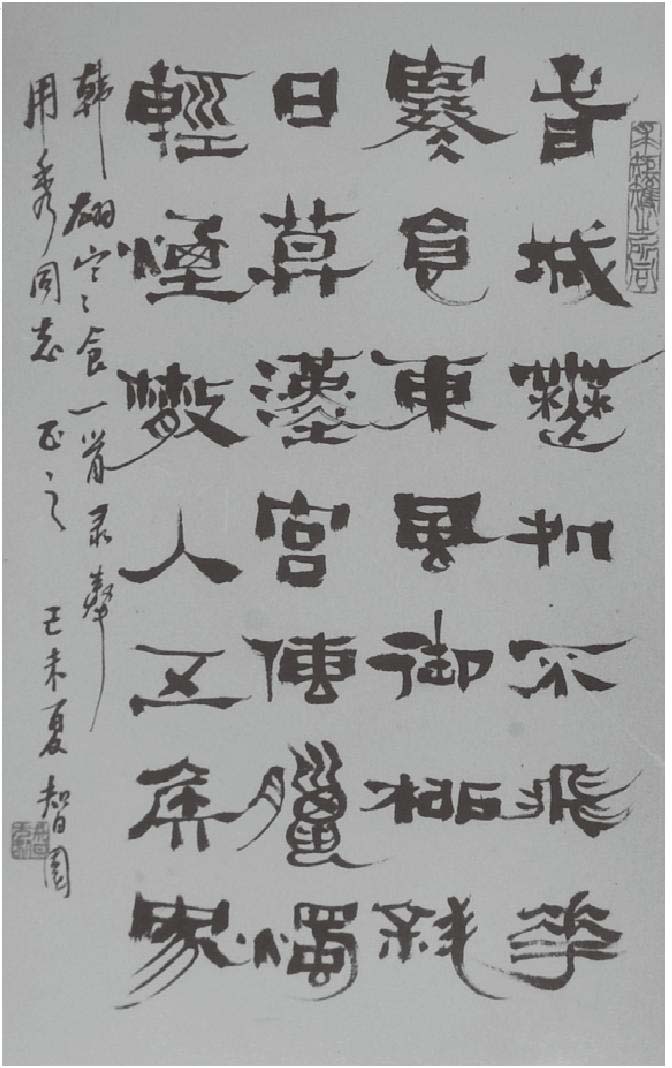 春城無処不飛花
寒食東風御柳斜
日暮漢宮傳臘燭
輕煙散入五矦家
韓翃寒食一首录奉
用秀同志正之 己未夏智園